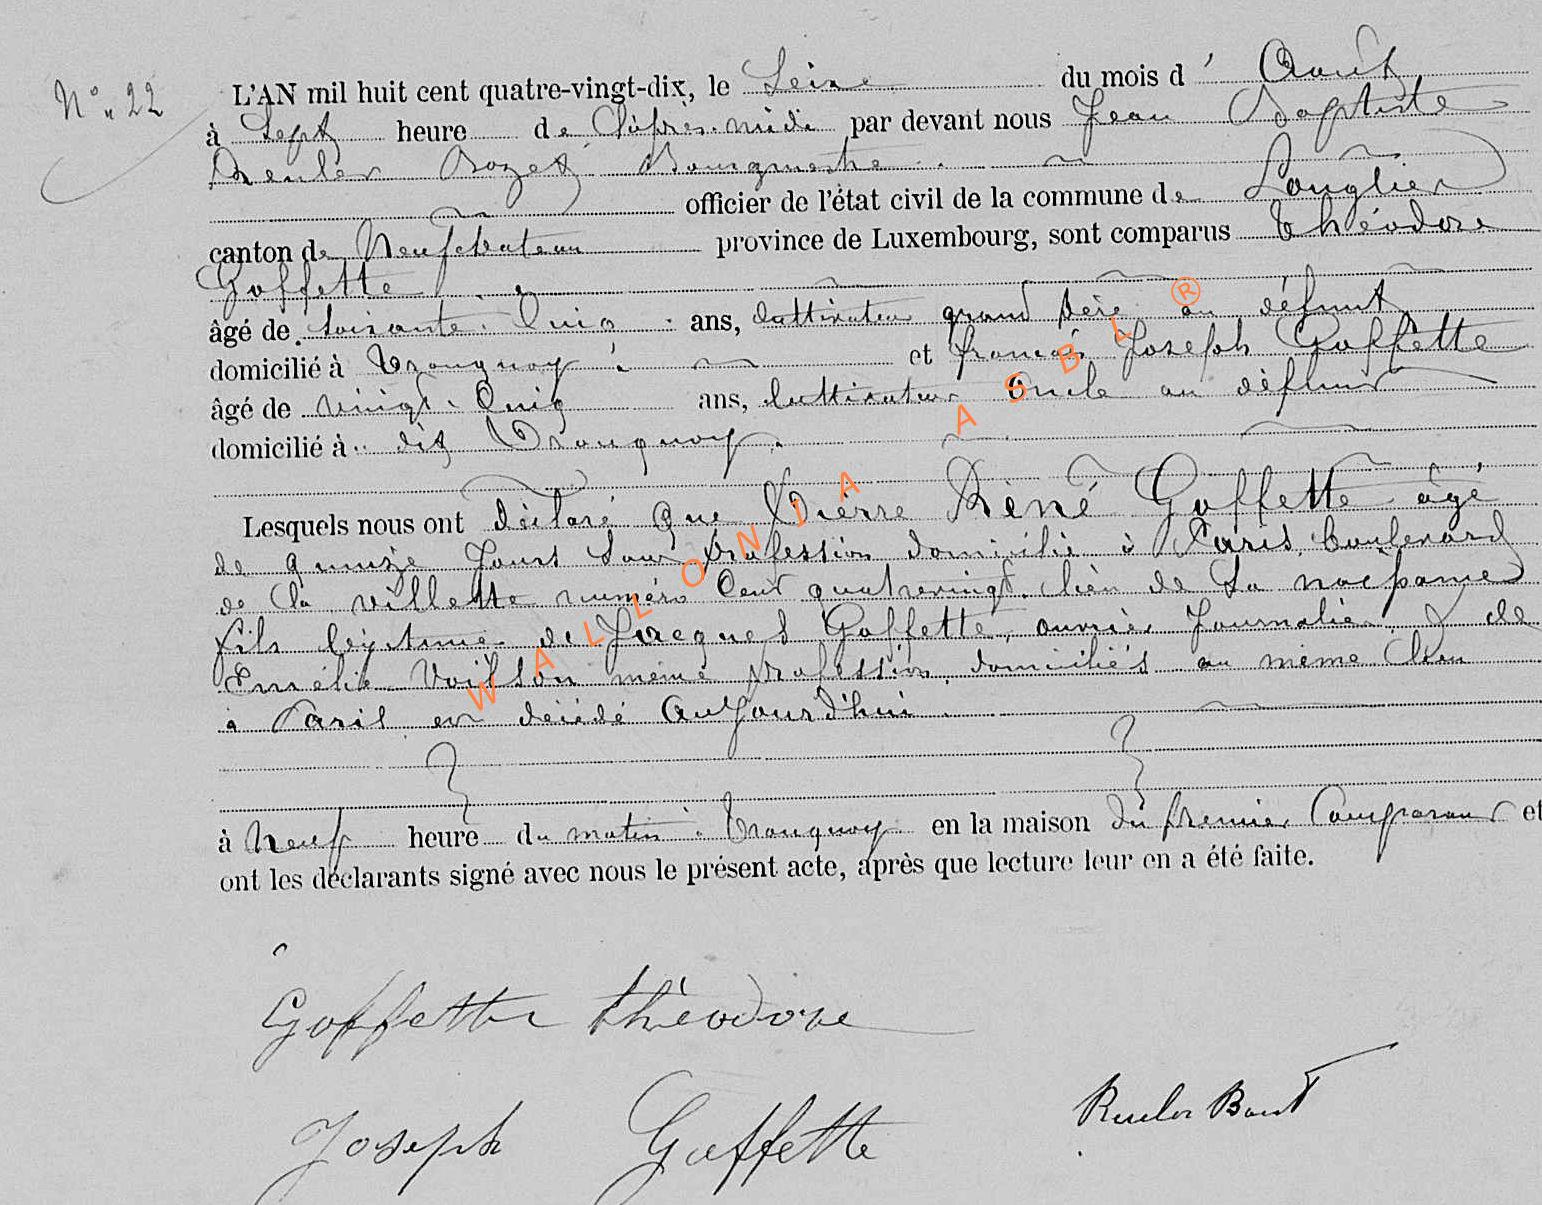 N° 22
L'AN mil huit cent quatre-vingt-dix, le Seize du mois d' Aout
à Sept heure de l'après-midi par devant nous Jean Baptiste
Reuler Bozet Bourgmestre
officier de l'état civil de la commune de Longlier
canton de Neufchateau province de Luxembourg, sont comparus Théodore
Goffette
âgé de soixante-cinq ans, cultivateur grand père au défunt
domicilié à Tronquoy et françois Joseph Goffette
âgé de vingt-cinq ans, cultivateur oncle au défunt
domicilié à dit Tronquoy.
Lesquels nous ont déclaré que Pierre Réné Goffette âgé
de quinze jours sans profession domicilié à Paris, boulevard
de la villette numéro Cent quatrevingt. lieu de sa
fils légitime de Jacques Goffette, ouvrier Journalier & de
Emélie Voilson même profession, domiciliés au même lieu
à Paris en décédé aujourd'hui
à Neuf heure du matin à Tronquoy en la maison du premier Comparant et
ont les déclarants signé avec nous le présent acte, après que lecture leur en a été faite.
Goffette théodore
Joseph Goffette
Reuler Bozet
WALLONIA ASBL ®